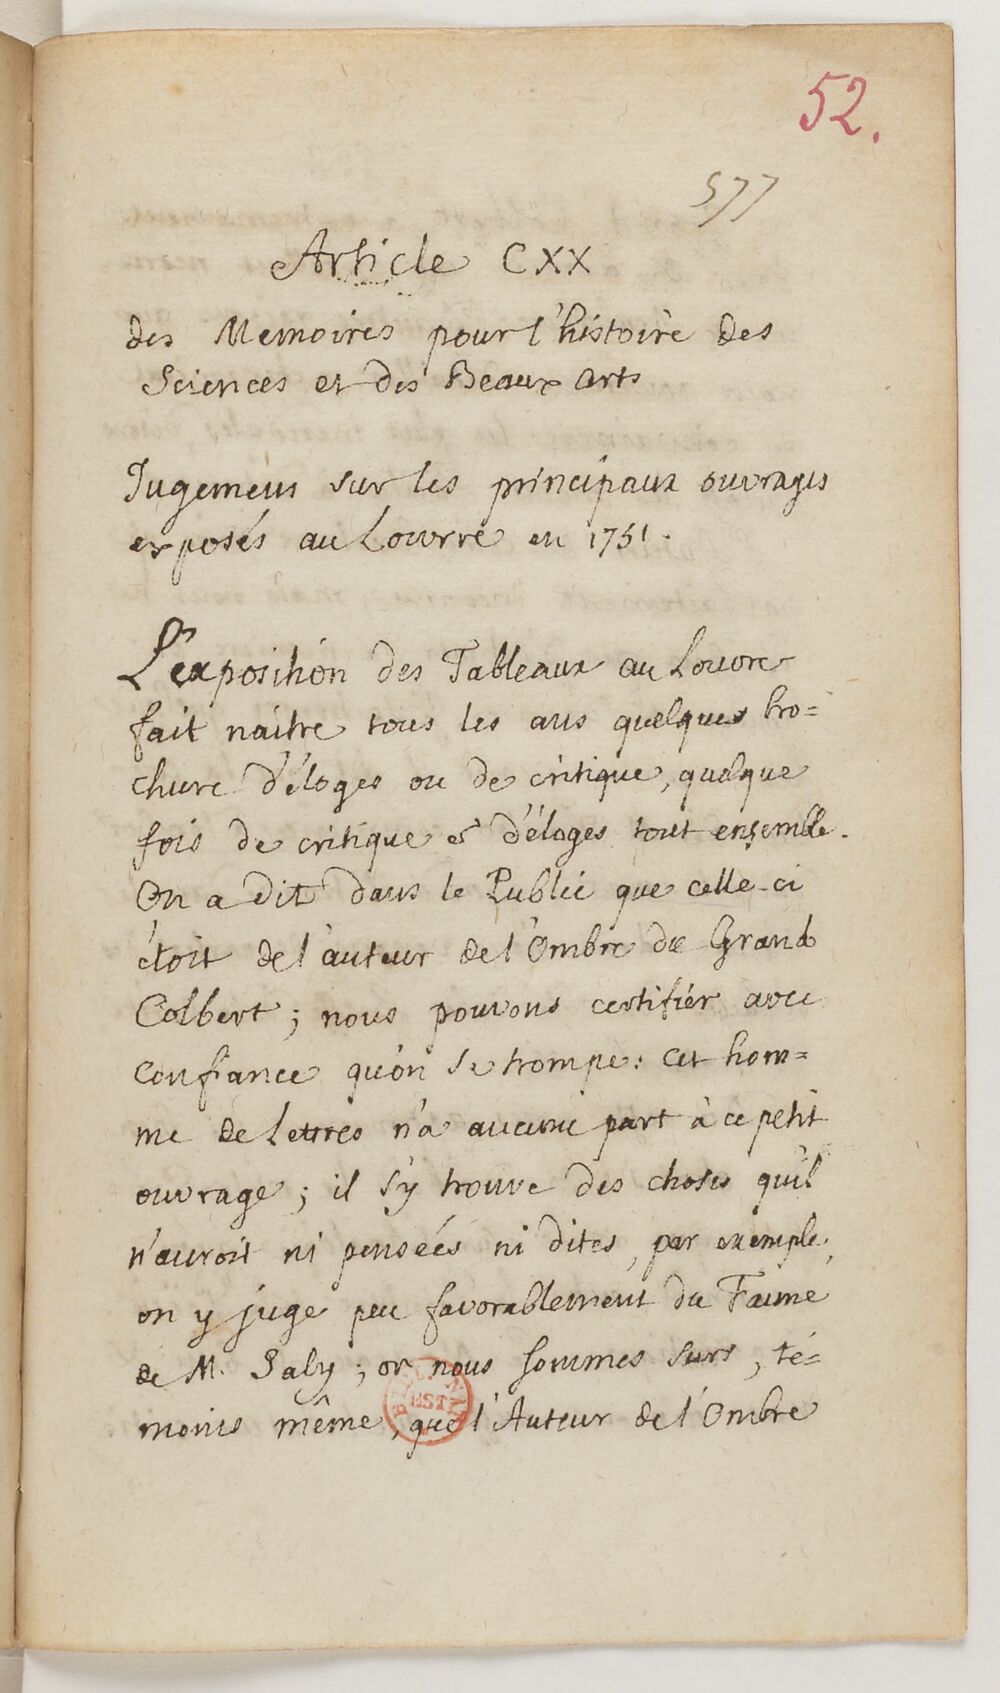 52.
577
Article CXX
des Memoires pour l'histoire des
Sciences et des Beaux arts
Jugemens sur les principaux ouvrages
exposés au Louvre en 1751.
L'exposition des Tableaux au Louvre
fait naitre tous les ans quelques bro=
chure d'éloges ou de critique, quelque
fois de critique et d'éloges tout ensemble.
On a dit dans le Public que celle-ci
étoit de l'auteur de l'Ombre du Grand
Colbert; nous pouvons certifier avec
confiance qu'on se trompe: cet hom=
me de Lettres n'a aucune part à ce petit
ouvrage; il s'y trouve des choses qu'il
n'auroit ni pensées ni dites, par exemple,
on y juge peu favorablement du Faune
de M. Saly; or nous sommes surs, té=
moins même, que l'Auteur de l'Ombre
EST